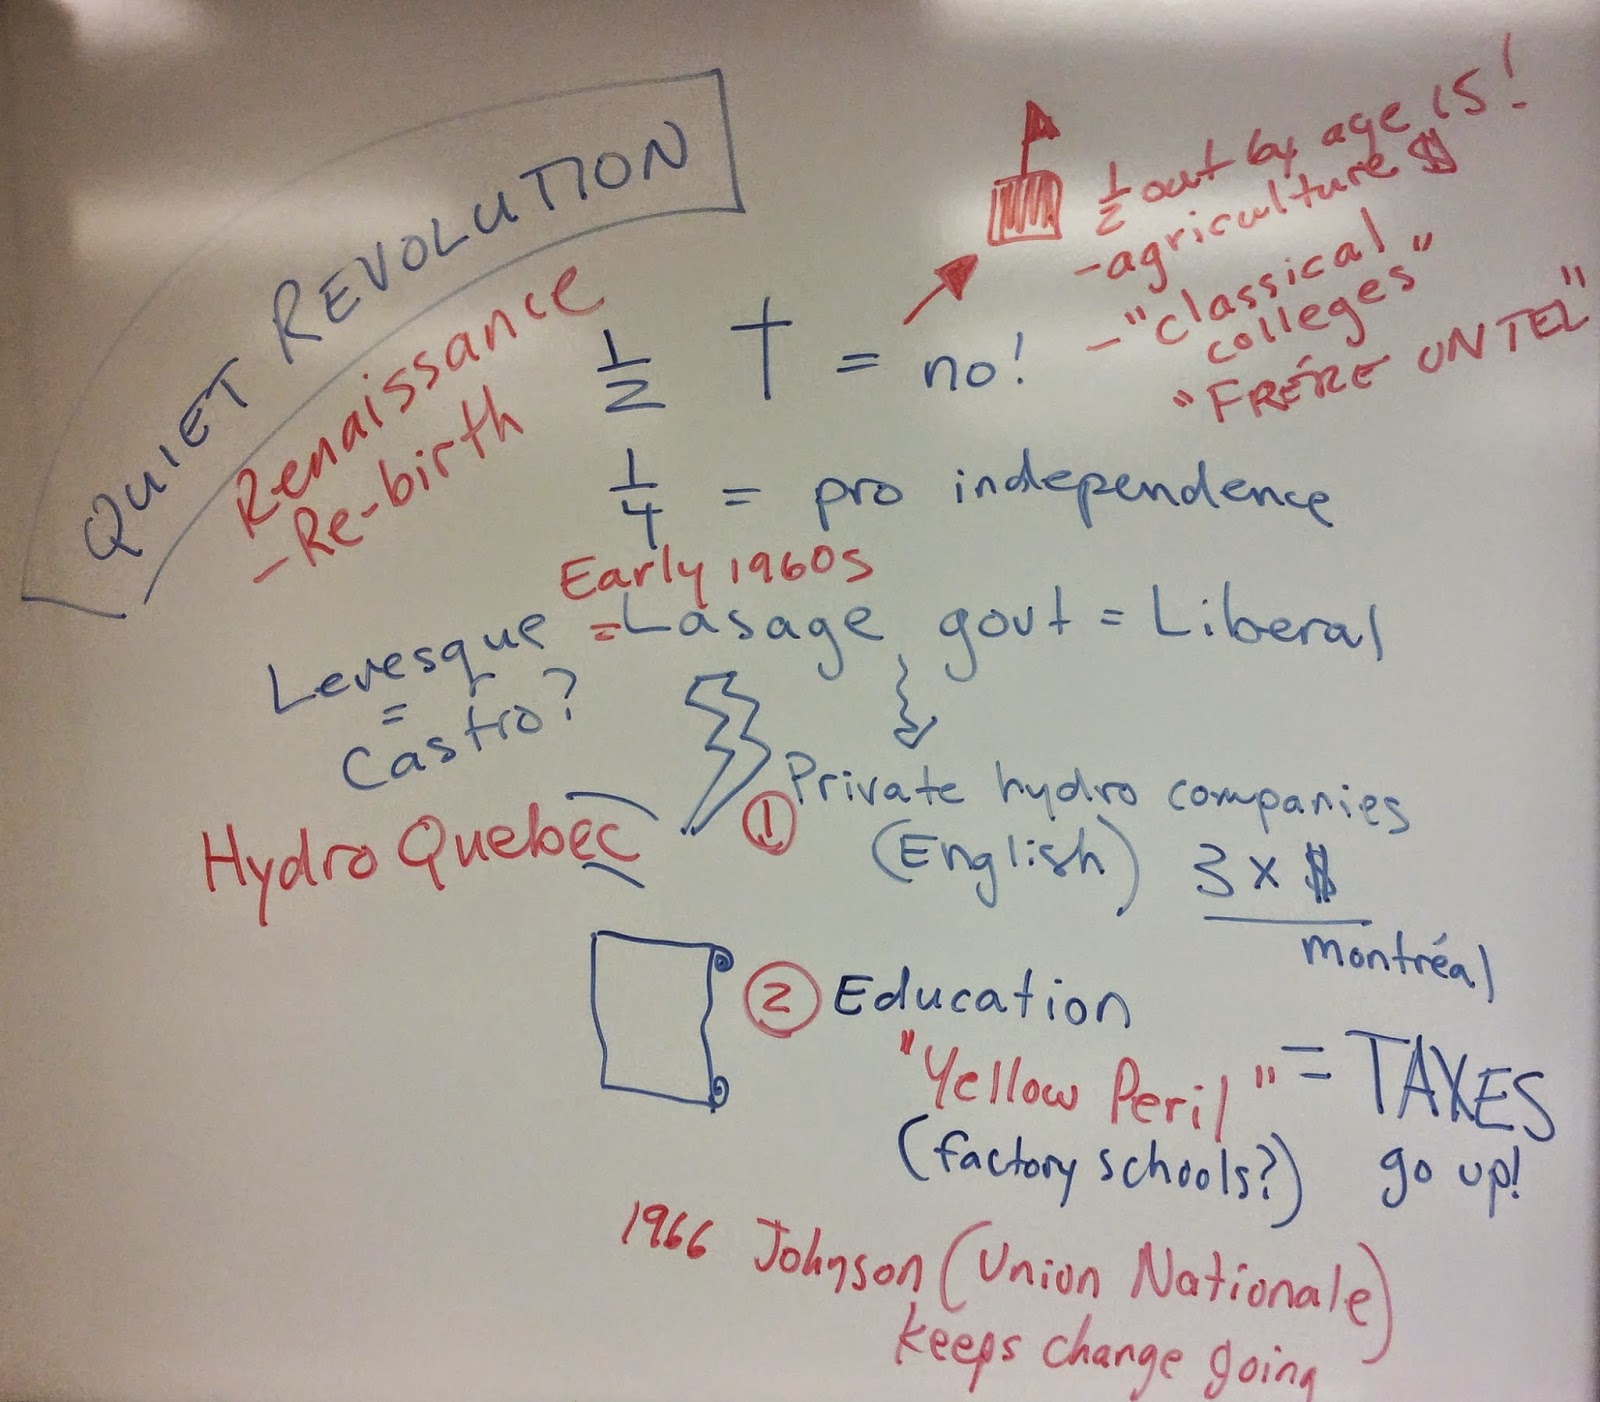 QUIET REVOLUTION
Renaissance
-Re-birth
1/2 out by age 15!
-agriculture $
-"classical
colleges"
"FRÉRE UNTEL"
1/2 † = no!
1/4 = pro independence
Early 1960s
Levesque = Lasage gout = Liberal
= 
Castro?
Hydro Quebec
1 Private hydro companies
(English) 3 x $
montréal
2 Education
"Yellow Peril" = TAXES
(factory schools?) go up!
1966 Johnson (Union Nationale)
keeps change going